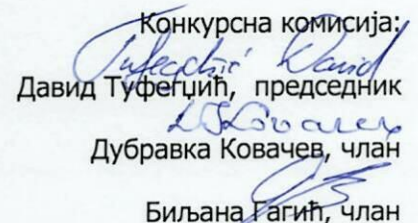 Конкурсна комисија:
Tufegdžić David
Давид Туфегџић, председник
D Kovačev
Дубравка Ковачев, члан
Биљана Гагић, члан